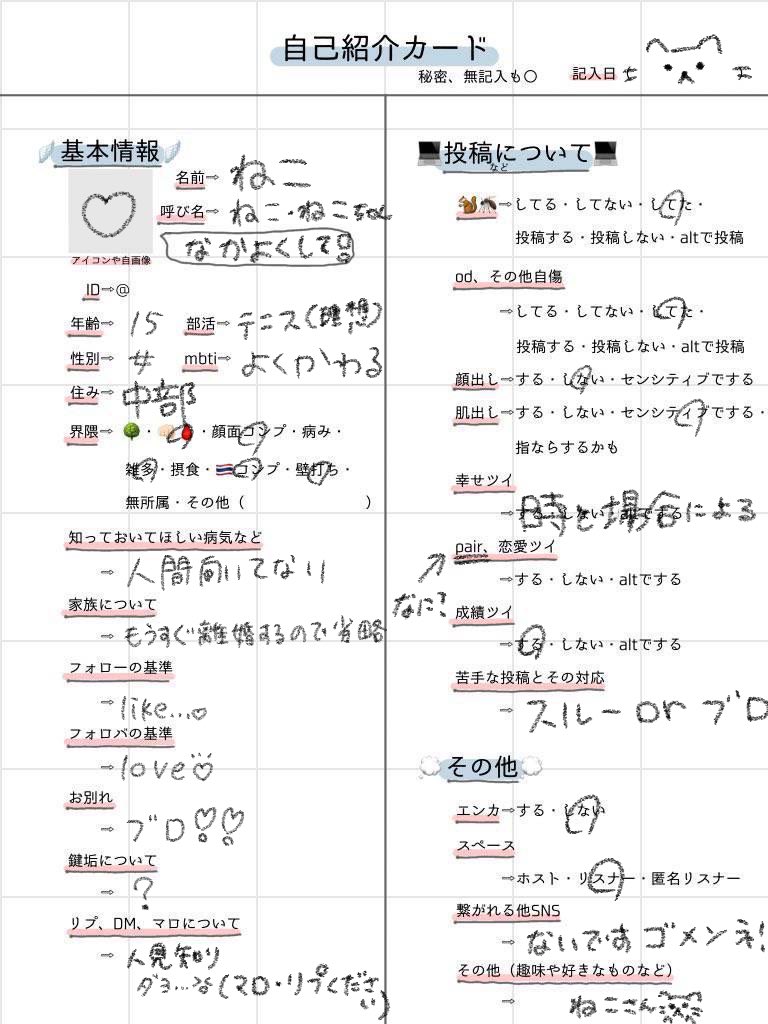 自己紹介カード
秘密、無記入も〇
記入日
基本情報
名前⇨ ねこ
呼び名⇨ ねこ・ねこちゃん
なかよくして
アイコンや自画像
ID⇨@
年齢⇨ 15 部活⇨ テニス(理想)
性別⇨ 女 mbti⇨ よくかわる
住み⇨ 中部
界隈⇨🌳・👊🏻🩸・顔面コンプ・病み・
雑多・摂食・🇹🇭コンプ・壁打ち・
無所属・その他（ ）
知っておいてほしい病気など
⇨ 人間向いてない
家族について
⇨ もうすぐ離婚するので省略
フォローの基準
⇨ like...♡
フォロバの基準
⇨ love♡
お別れ
⇨ ブロ
鍵垢について
⇨ ?
リプ、DM、マロについて
⇨ 人見知り
ダヨ...(マロ・リプください)
投稿について
など
🐿🦟⇨してる・してない・してた・
投稿する・投稿しない・altで投稿
od、その他自傷
⇨してる・してない・してた・
投稿する・投稿しない・altで投稿
顔出し⇨する・しない・センシティブでする
肌出し⇨する・しない・センシティブでする・
指ならするかも
幸せツイ
⇨する・しない・altでする
時と場合による
pair、恋愛ツイ
⇨する・しない・altでする
なに?
成績ツイ
⇨する・しない・altでする
苦手な投稿とその対応
⇨ スルー or ブロ
その他
エンカ⇨する・しない
スペース
⇨ホスト・リスナー・匿名リスナー
繋がれる他SNS
⇨ ないです ゴメンネ!
その他（趣味や好きなものなど）
⇨ ねこさん